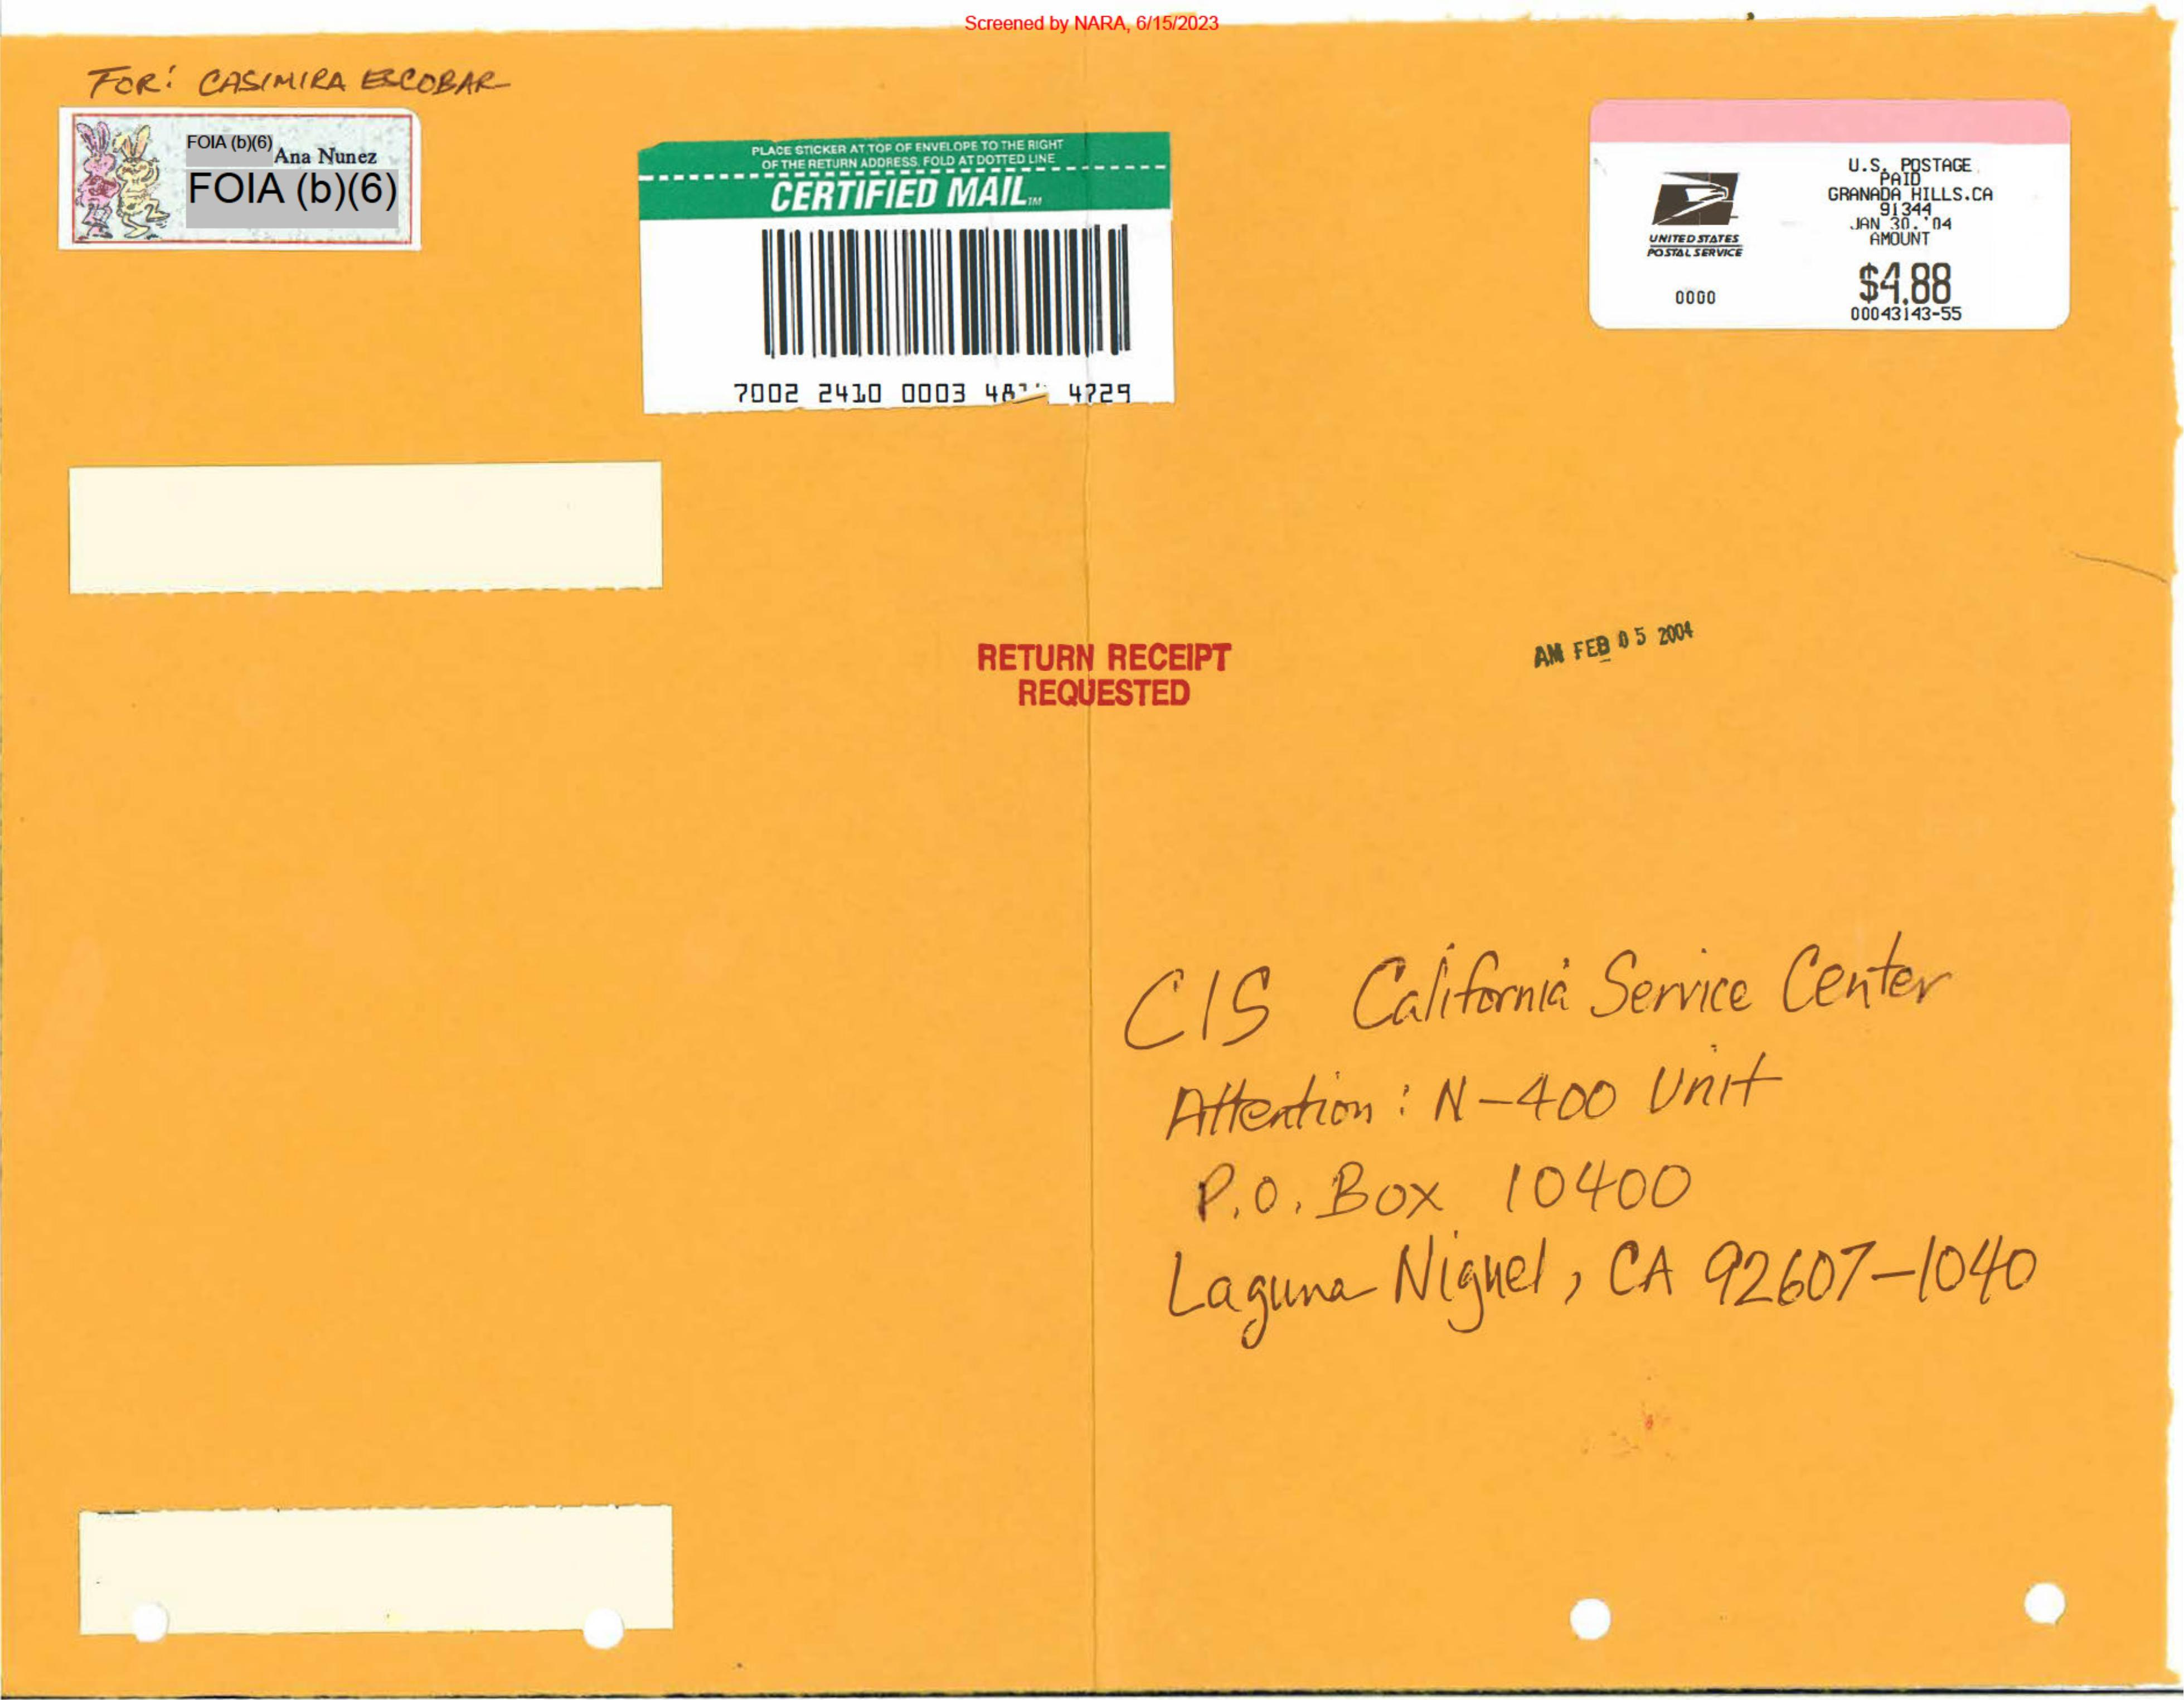 Screened by NARA, 6/15/2023
FOR: CASIMIRA ESCOBAR
FOIA (b)(6)
Ana Nunez
FOIA (b)(6)
PLACE STICKER AT TOP OF ENVELOPE TO THE RIGHT
OF THE RETURN ADDRESS, FOLD AT DOTTED LINE
CERTIFIED MAIL™
7002 2410 0003 4729
UNITED STATES
POSTAL SERVICE
0000
U.S. POSTAGE
PAID
GRANADA HILLS.CA
91344
JAN 30. '04
AMOUNT
$4.88
00043143-55
RETURN RECEIPT
REQUESTED
AM FEB 05 2004
CIS California Service Center
Attention: N-400 Unit
P.O. Box 10400
Laguna Niguel, CA 92607-1040